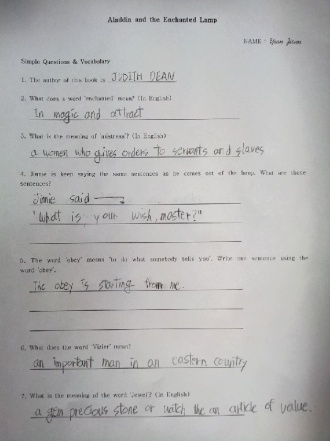 Aladdin and the Enchanted Lamp
NAME :
Simple Questions & Vocabulary
1. The author of this book is JUDITH DEAN
2. What does a word 'enchanted' mean? (In English)
In magic and attract
3. What is the meaning of 'mistress'? (In English)
a women who gives orders to servants and slaves
4. Jinnie is keep saying the same sentences as he comes out of the lamp. What are those
sentences?
Jinnie said
"What is your wish, master?"
5. The word 'obey' means 'to do what somebody tells you'. Write one sentence using the
word 'obey'.
The obey is starting from me.
6. What does the word 'Vizier' mean?
an important man in an eastern country
7. What is the meaning of the word 'Jewel'? (In English)
a gem precious stone or watch the an article of value.